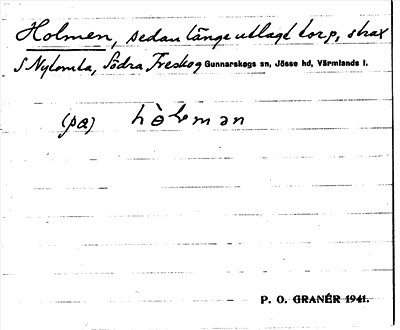 Holmen, sedan länge utlagt torp, strax
S Nylomta, Södra Treskog Gunnarskogs sn, Jösse hd, Värmlands l.
(på) hòɫman
P. O. GRANÉR 1941.